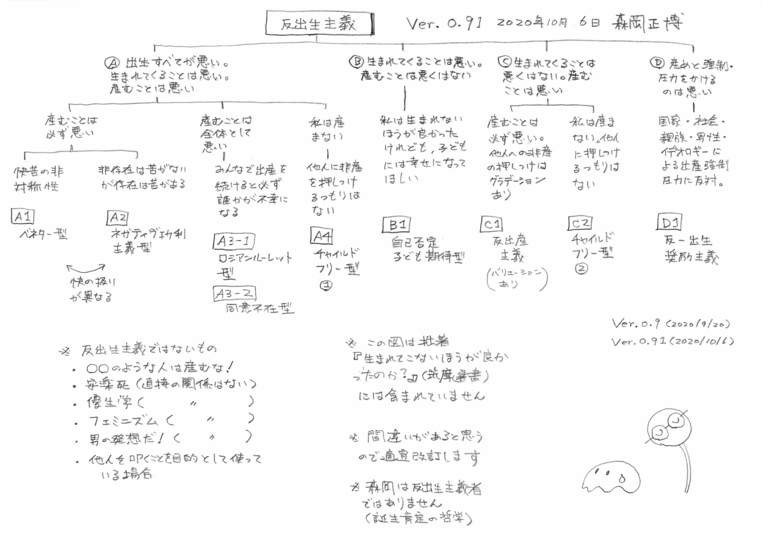 反出生主義
Ver. 0.91 2020年10月6日 森岡正博
Ⓐ 出生すべてが悪い。
生まれてくることは悪い。
産むことは悪い
Ⓑ 生まれてくることは悪い。
産むことは悪くはない
Ⓒ 生まれてくることは
悪くはない。産む
ことは悪い
Ⓓ 産めと強制・
圧力をかける
のは悪い
産むことは
必ず悪い
産むことは
全体として
悪い
私は産
まない
私は生まれない
ほうが良かった
けれども、子ども
には幸せになって
ほしい
産むことは
必ず悪い。
他人への非産
の押しつけは
グラデーション
あり
私は産ま
ない。他人
に押しつけ
るつもりは
ない
国家・社会・
親族・男性・
イデオロギーに
よる出産強制
圧力に反対。
快苦の非
対称性
非存在は苦がない
が存在は苦がある
みんなで出産を
続けると必ず
誰かが不幸に
なる
他人に非産
を押しつけ
るつもりは
ない
A1
ベネター型
A2
ネガティヴ功利
主義型
快の扱い
が異なる
A3-1
ロシアンルーレット
型
A3-2
同意不在型
A4
チャイルド
フリー型
①
B1
自己否定
子ども期待型
C1
反出産
主義
(バリエーション
あり)
C2
チャイルド
フリー型
②
D1
反-出生
奨励主義
Ver. 0.9 (2020/9/20)
Ver. 0.91 (2020/10/6)
※ 反出生主義ではないもの
・ ○○のような人は産むな!
・ 安楽死(直接の関係はない)
・ 優生学( 〃 )
・ フェミニズム( 〃 )
・ 男の発想だ!( 〃 )
・ 他人を叩くことを目的として使って
いる場合
※ この図は拙著
『生まれてこないほうが良か
ったのか?』(筑摩選書)
には含まれていません
※ 間違いがあると思う
ので適宜改訂します
※ 森岡は反出生主義者
ではありません
(誕生肯定の哲学)